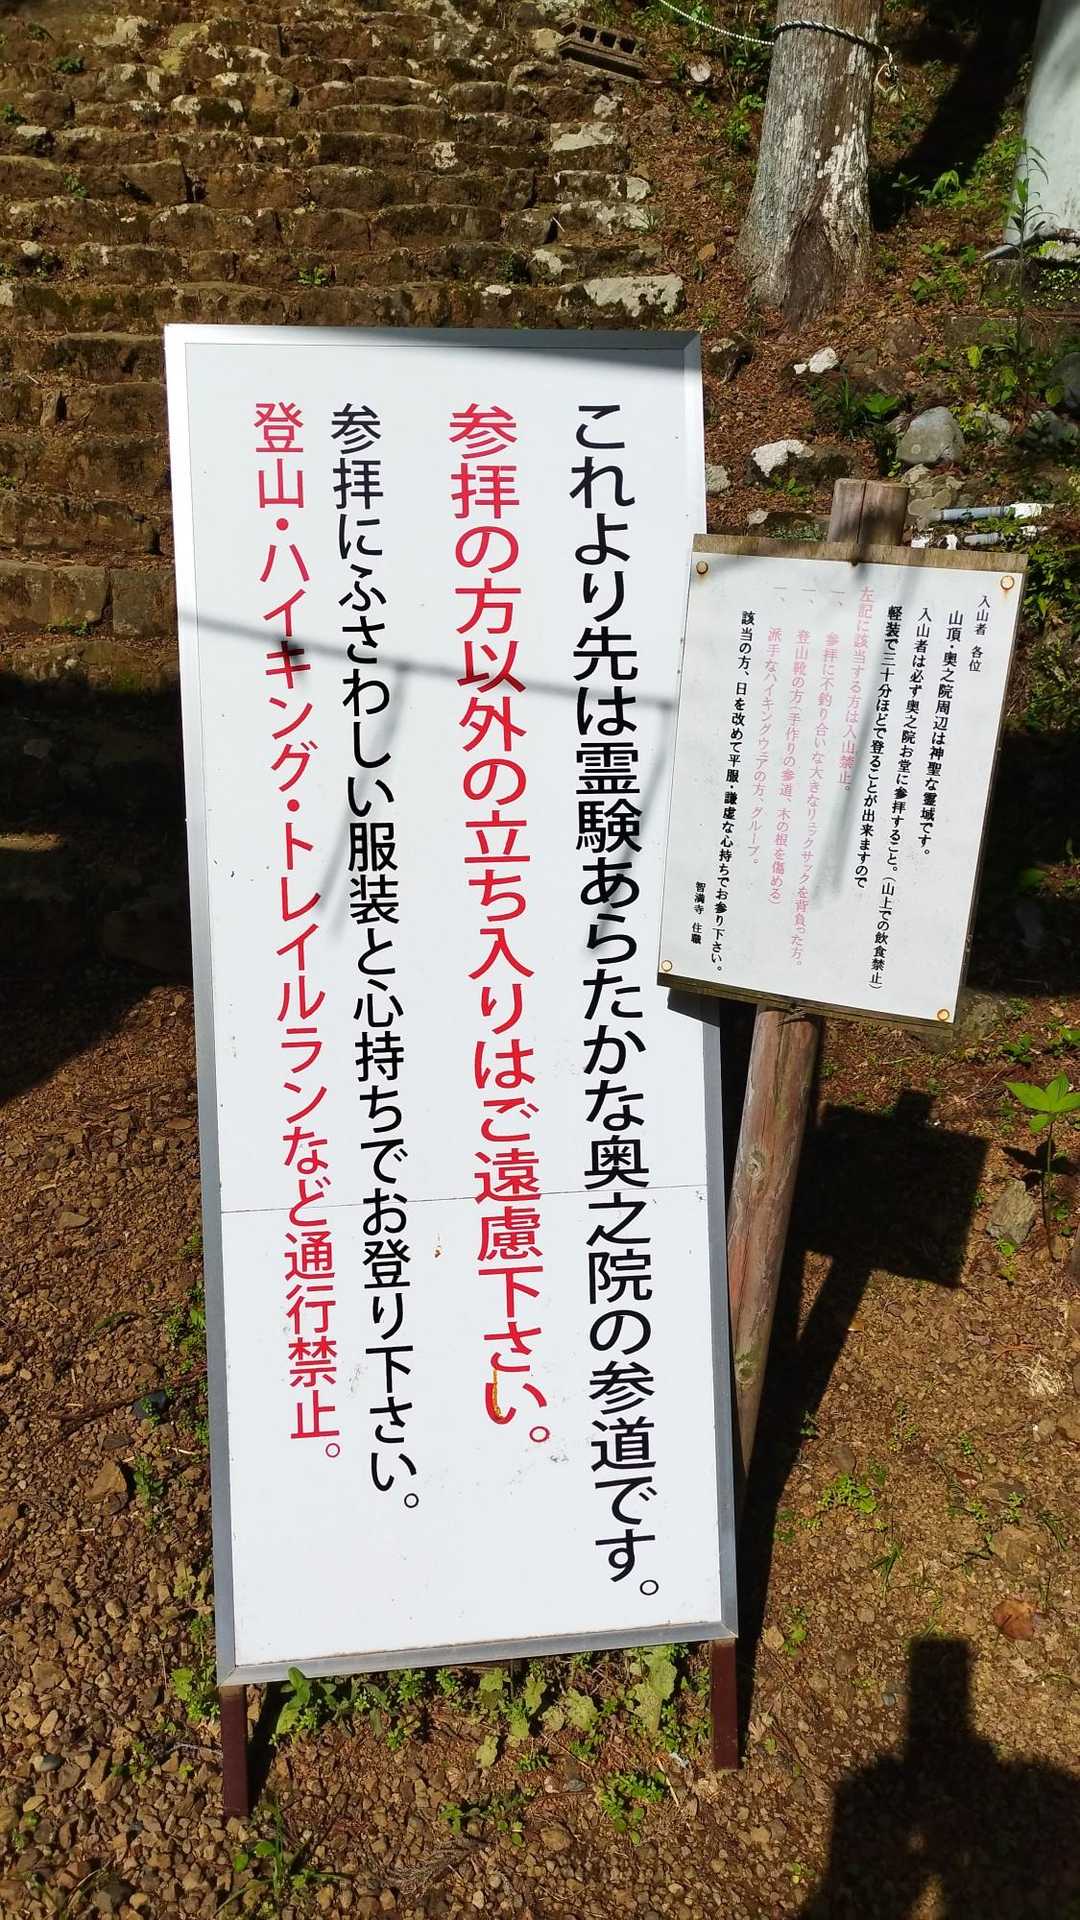 これより先は霊験あらたかな奥之院の参道です。
参拝の方以外の立ち入りはご遠慮下さい。
参拝にふさわしい服装と心持ちでお登り下さい。
登山・ハイキング・トレイルランなど通行禁止。
入山者 各位
山頂・奥之院周辺は神聖な霊域です。
入山者は必ず奥之院お堂に参拝すること。(山上での飲食禁止)
軽装で三十分ほどで登ることが出来ますので
左記に該当する方は入山禁止。
一、参拝に不釣り合いな大きなリュックサックを背負った方。
一、登山靴の方(手作りの参道、木の根を傷める)
一、派手なハイキングウエアの方、グループ。
該当の方、日を改めて平服・謙虚な心持ちでお参り下さい。
智満寺 住職